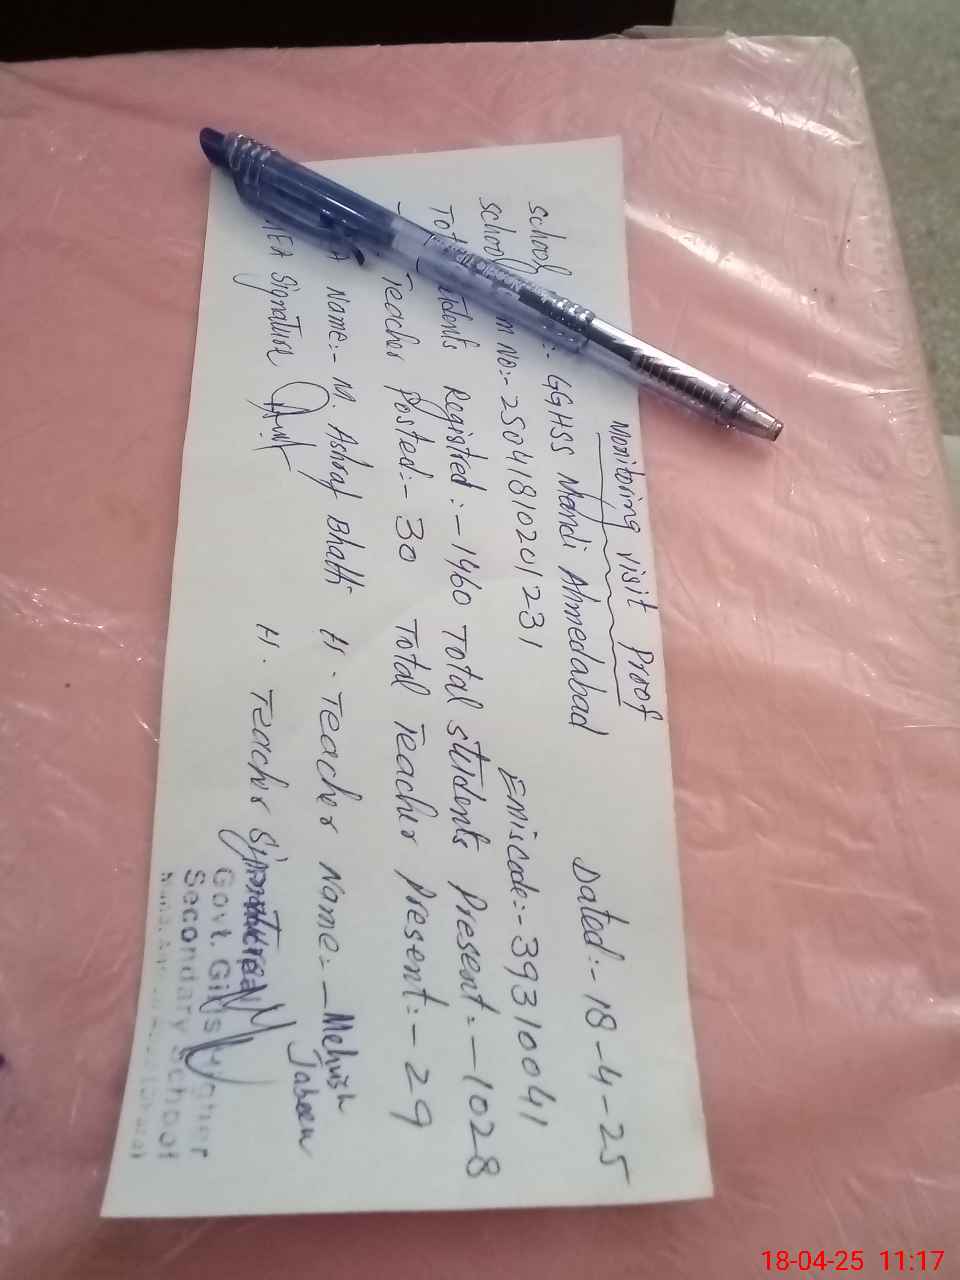 Monitoring visit Proof
Dated:- 18-4-25
School :- GGHSS Mandi Ahmedabad
School m No:- 25041810201231 Emiscode:- 39310041
Tot dents Registred:- 1460 Total students Present:- 1028
Teacher Posted:- 30 Total Teacher Present:- 29
A Name:- M. Ashraf Bhatti H. Teacher Name:- Mehwish Jabeen
EA Signature H. Teacher Signature
Govt. Girls Higher
Secondary School
18-04-25 11:17